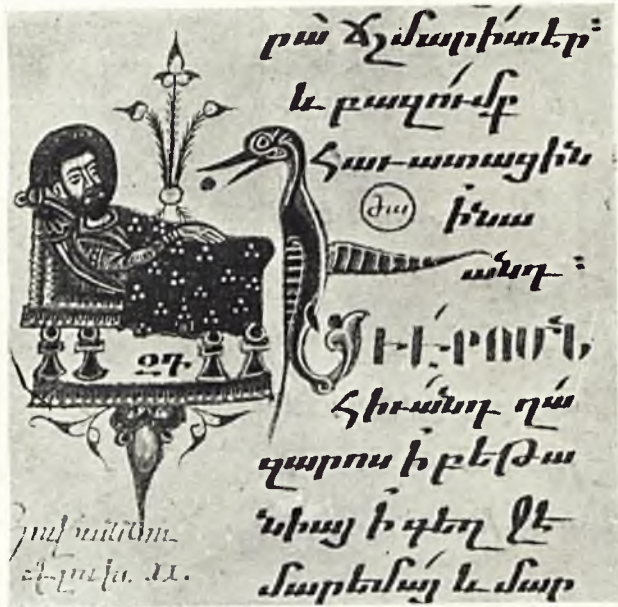 րա՛ ճշմարի՛տ էր։
և բազո՛ւմք
հաւատացին
ժա ի՛նա
անդ։
ԵՒ Է՛Ր ՈՄՆ
հիւա՛նդ ղա՛
զարոս ի՛ բեթա
նիայ ի գեղջէ
մարեմայ և մար
ՂԴ
Յովհաննու
Գլուխ. XI.